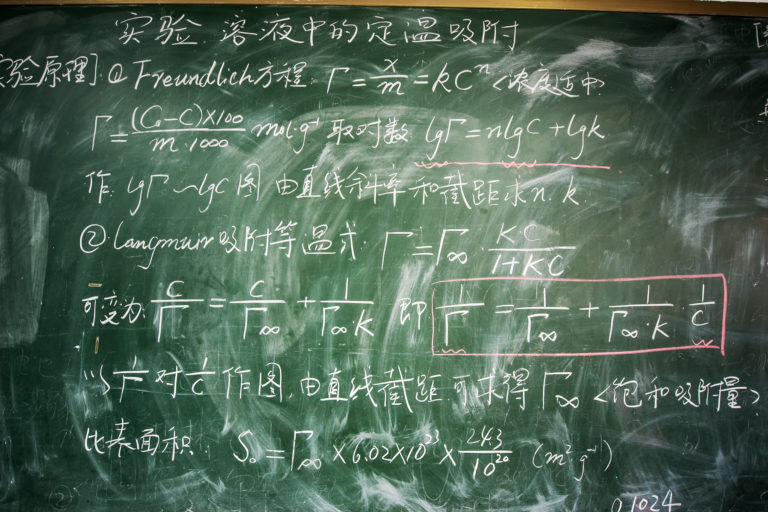 实验 溶液中的定温吸附
实验原理] ① Freundlich方程 Γ = x/m = kC^n <浓度适中
Γ = (C₀-C)×100/m·1000 mol·g⁻¹ 取对数 lgΓ = nlgC + lgk
作 lgΓ ~ lgC 图 由直线斜率和截距求 n. k.
② langmuir 吸附等温式. Γ = Γ∞ · KC/1+KC
可变为: C/Γ = C/Γ∞ + 1/Γ∞·K 即 1/Γ = 1/Γ∞ + 1/Γ∞·K · 1/C
以 1/Γ 对 1/C 作图, 由直线截距可求得 Γ∞ <饱和吸附量>
比表面积: S₀ = Γ∞ × 6.02×10²³ × 24.3/10²⁰ (m² g⁻¹)
0.1024